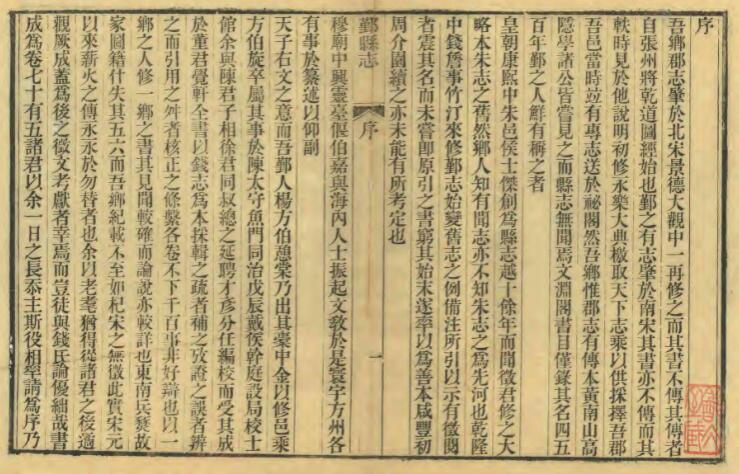 序
吾鄉郡志肇於北宋景德大觀中一再修之而其書不傳其傳者
自張州將乾道圖經始也鄞之有志肇於南宋其書亦不傳而其
軼時見於他說明初修永樂大典檄取天下志乘以供採擇吾郡
吾邑當時竝有專志送於祕閣然吾鄉惟郡志有傳本黃南山高
隱學諸公皆嘗見之而縣志無聞焉文淵閣書目僅錄其名四五
百年鄞之人鮮有稱之者
皇朝康熙中朱邑侯士傑創為縣志越十餘年而聞徵君修之大
略本朱志之舊然鄉人知有聞志亦不知朱志之為先河也乾隆
中錢詹事竹汀來修鄞志始變舊志之例備注所引以示有徵閱
者震其名而未嘗即原引之書窮其始末遂率以為善本咸豐初
周介園續之亦未能有所考定也
鄞縣志
序
一
穆廟中興靈臺偃伯嘉與海內人士振起文教於是寰宇方州各
有事於纂述以仰副
天子右文之意而吾鄞人楊方伯憩棠乃出其橐中金以修邑乘
方伯旋卒屬其事於陳太守魚門同治戊辰戴侯幹庭設局校士
館余與陳君子相徐君同叔總之延聘才彥分任編校而受其成
於董君覺軒全書以錢志為本採輯之疏者補之攷證之誤者辨
之而引用之舛者核正之條繫各卷不下千百事非好辯也以一
鄉之人修一鄉之書其見聞較確而論說亦較詳也東南兵燹故
家圖籍什失其五六而吾鄉紀載不至如杞宋之無徵此實宋元
以來薪火之傳永永於勿替者也余以老耄猶得從諸君之後適
觀厥成蓋為後之徵文考獻者幸焉而豈徒與錢氏論優絀哉書
成為卷七十有五諸君以余一日之長忝主斯役相率請為序乃